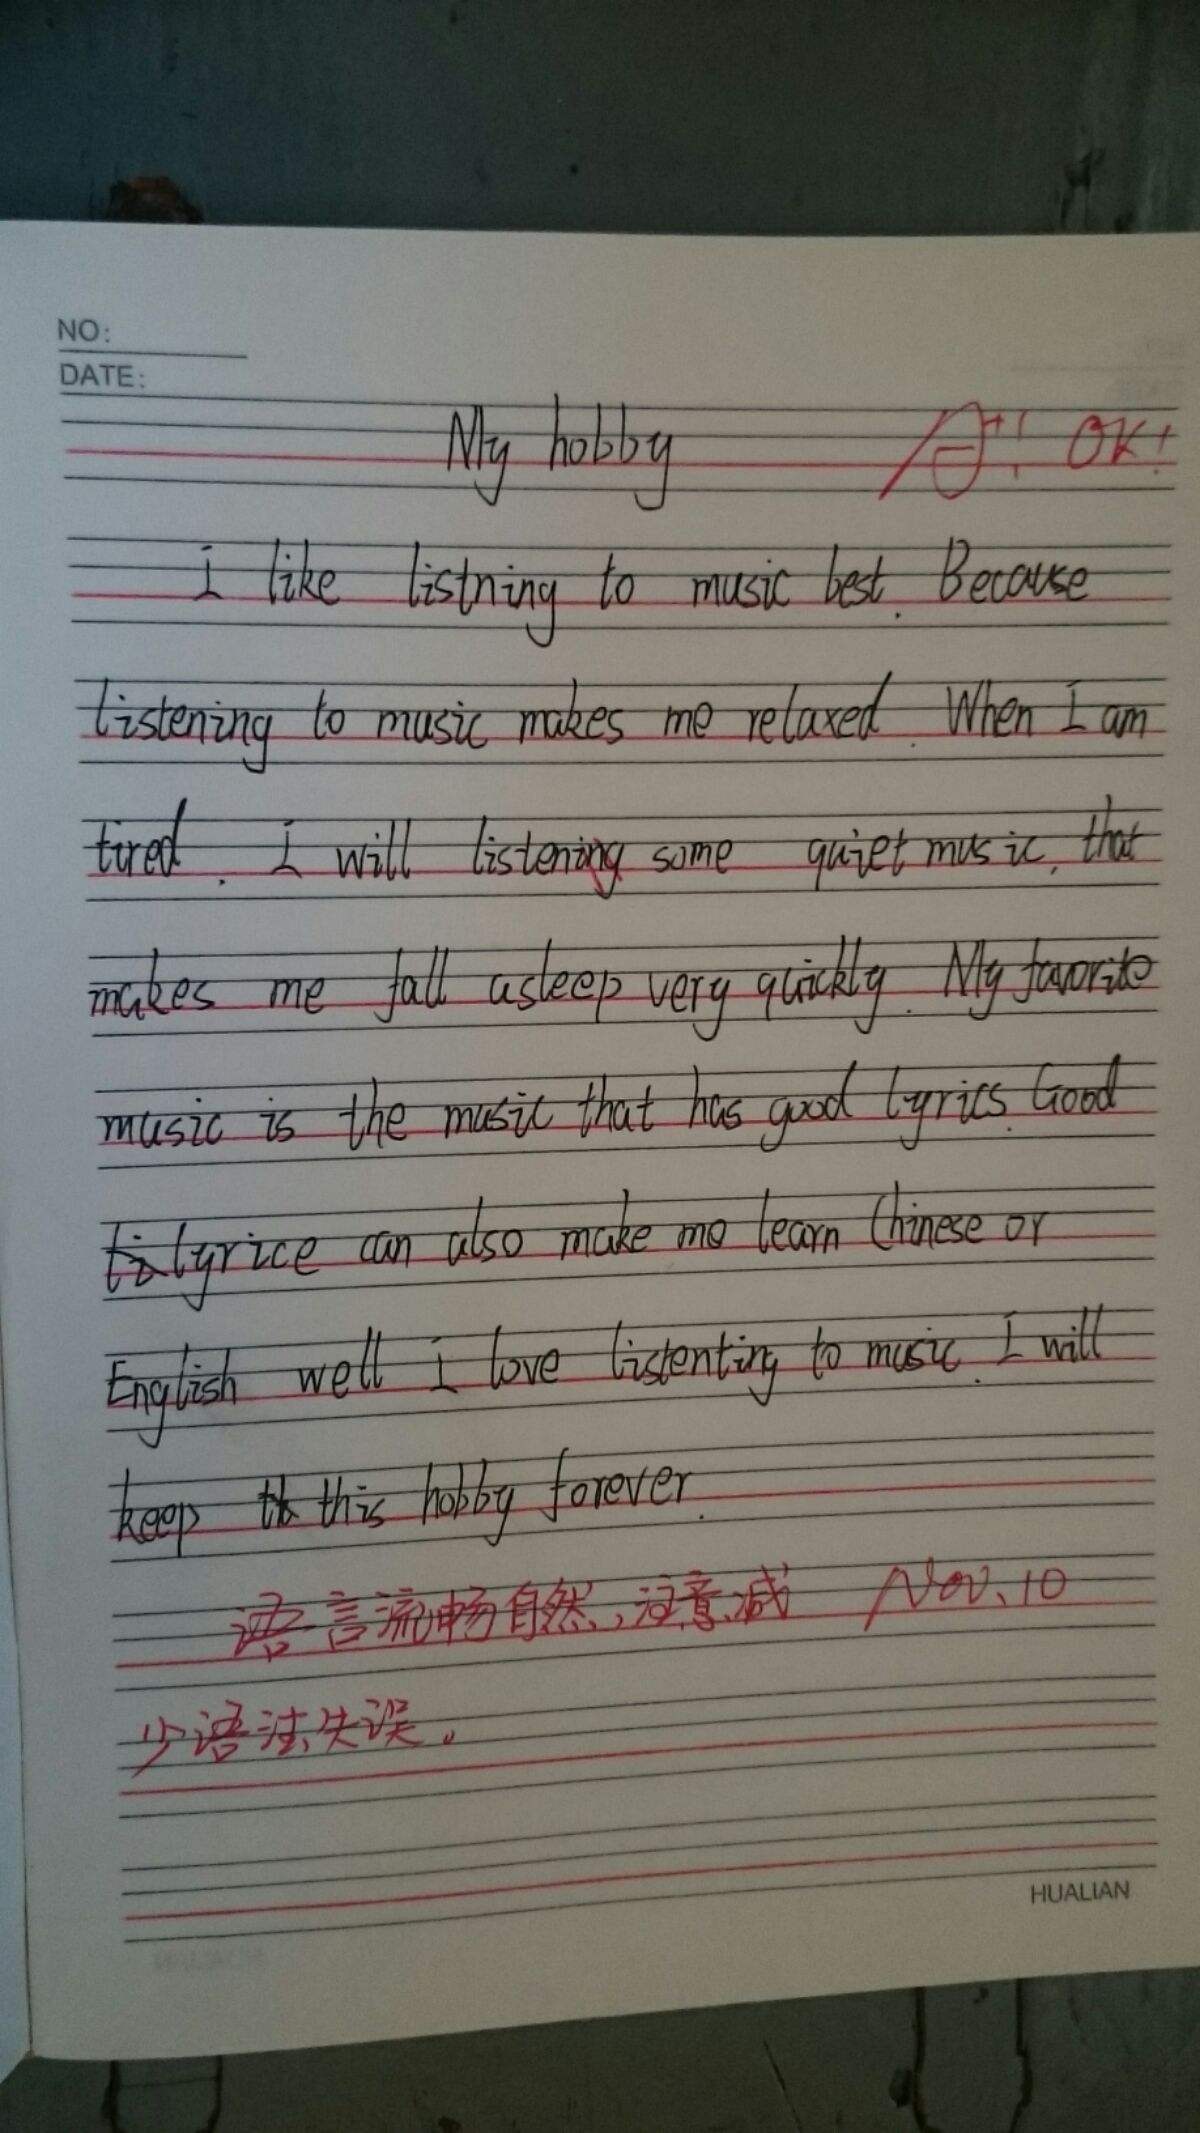 NO:
DATE:
My hobby
A+!! OK!
I like listning to music best. Because
listening to music makes me relaxed. When I am
tired. I will listening some quiet music. that
makes me fall asleep very quickly. My favorite
music is the music that has good lyrics. Good
lyrice can also make me learn Chinese or
English well I love listenting to music. I will
keep this hobby forever.
语言流畅自然,注意减 Nov.10
少语法失误。
HUALIAN